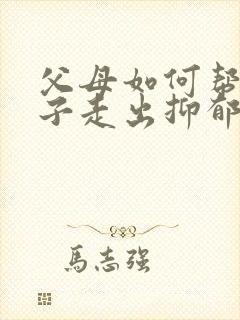 父母如何帮
子走出抑郁
馬志强